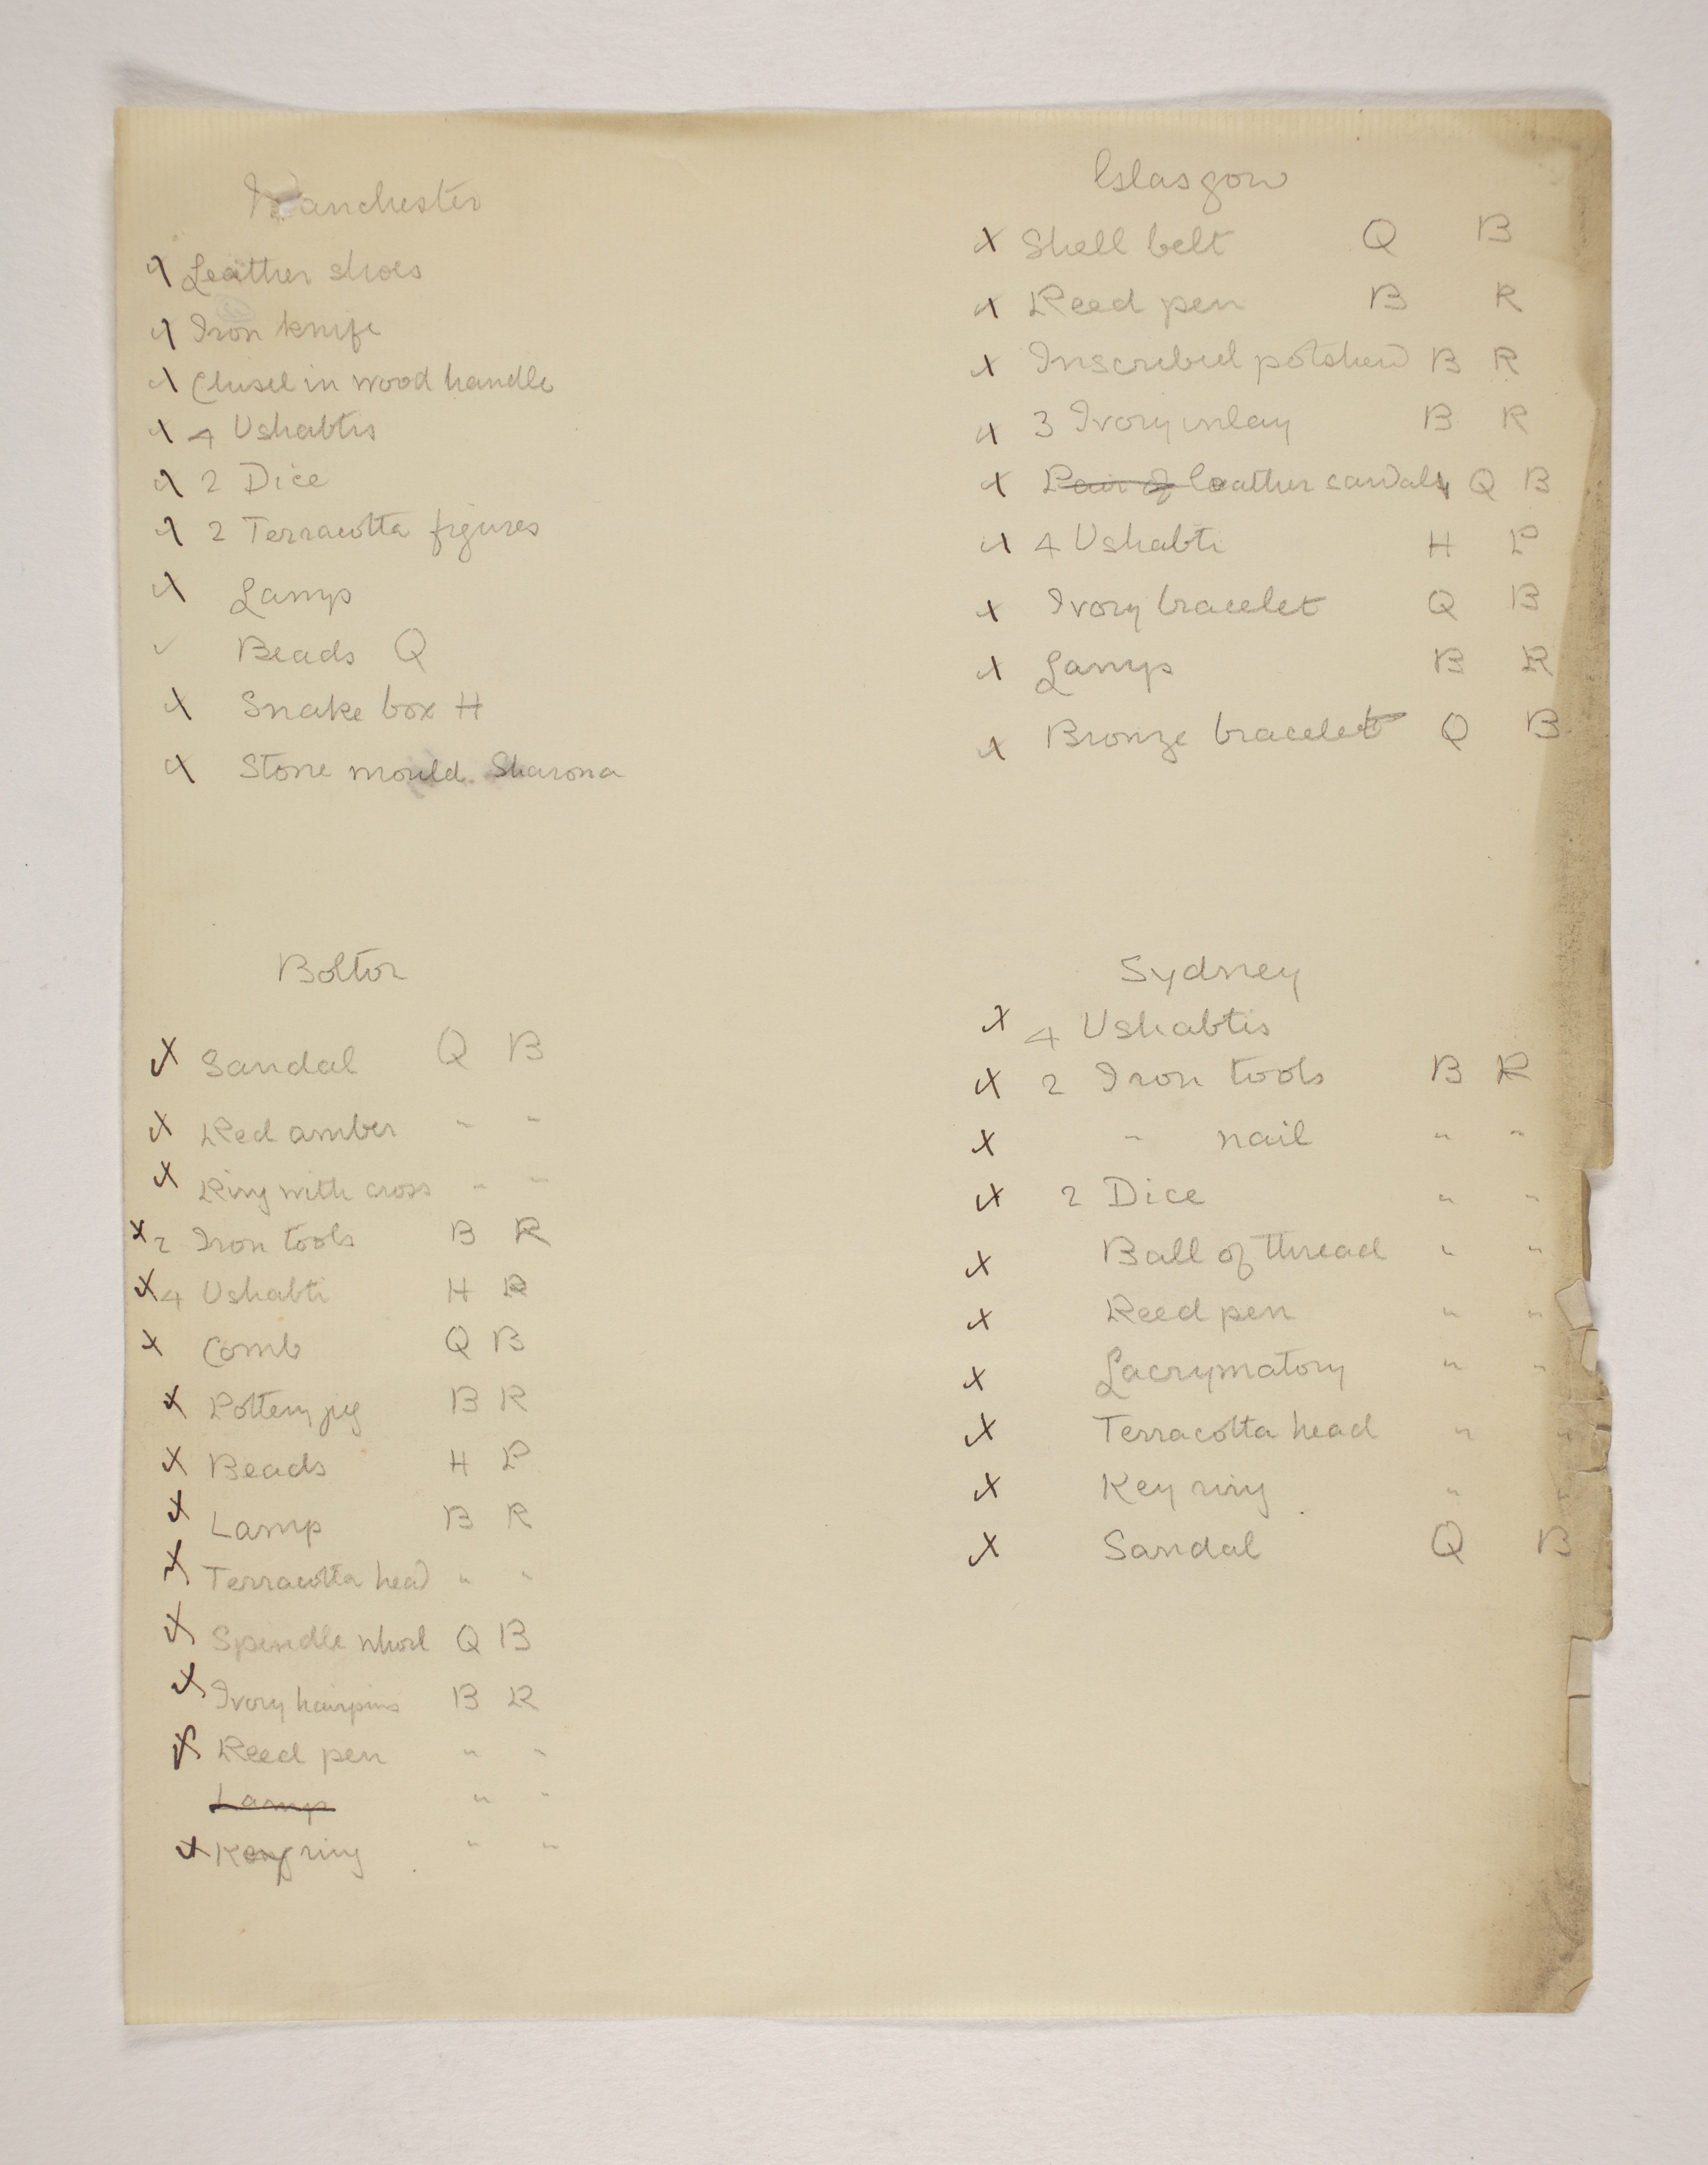 Manchester
x Leather shoes
x Iron knife
x Chisel in wood handle
x 4 Ushabtis
x 2 Dice
x 2 Terracotta figures
x Lamp
✓ Beads Q
x Snake box H
x Stone mould. Sharona
Glasgow
x Shell belt Q B
x Reed pen B R
x Inscribed potsherd B R
x 3 Ivory inlay B R
x Pair of leather sandals Q B
x 4 Ushabti H P
x Ivory bracelet Q B
x Lamp B R
x Bronze bracelet Q B
Bolton
x Sandal Q B
x Red amber " "
x Ring with cross " "
x 2 Iron tools B R
x 4 Ushabti H R
x Comb Q B
x Pottery jug B R
x Beads H P
x Lamp B R
x Terracotta head " "
x Spindle whorl Q B
x Ivory hairpins B R
x Reed pen " "
Lamp " "
x Key ring " "
Sydney
x 4 Ushabtis
x 2 Iron tools B R
x " nail " "
x 2 Dice " "
x Ball of thread " "
x Reed pen " "
x Lacrymatory " "
x Terracotta head " "
x Key ring " "
x Sandal Q B